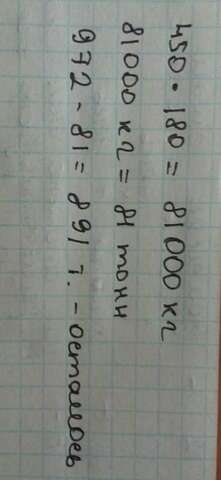 450 · 180 = 81000 кг
81000 кг = 81 тонн
972 - 81 = 891 т. - осталось